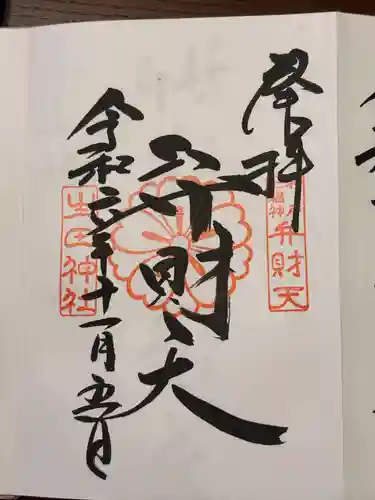 奉拝
弁財天
弁財天
令和元年十一月五日
生田神社